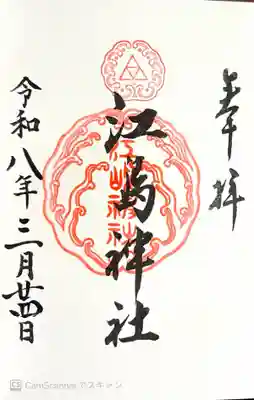 奉拝
江島神社
江嶋神社
令和八年三月廿四日
CS CamScanner でスキャン